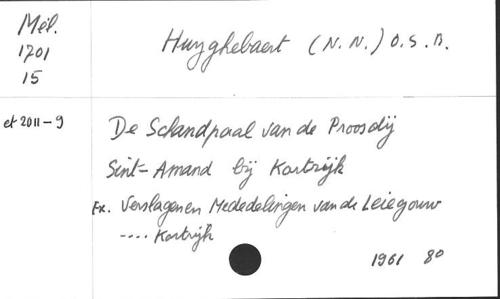 Mél.
1701
15
Huyghebaert (N. N.) O. S. B.
et 2011-9
De Schandpaal van de Proosdij
Sint-Amand bij Kortrijk
Ex. Verslagen en Mededelingen van de Leiegouw
.... Kortrijk
1961 80